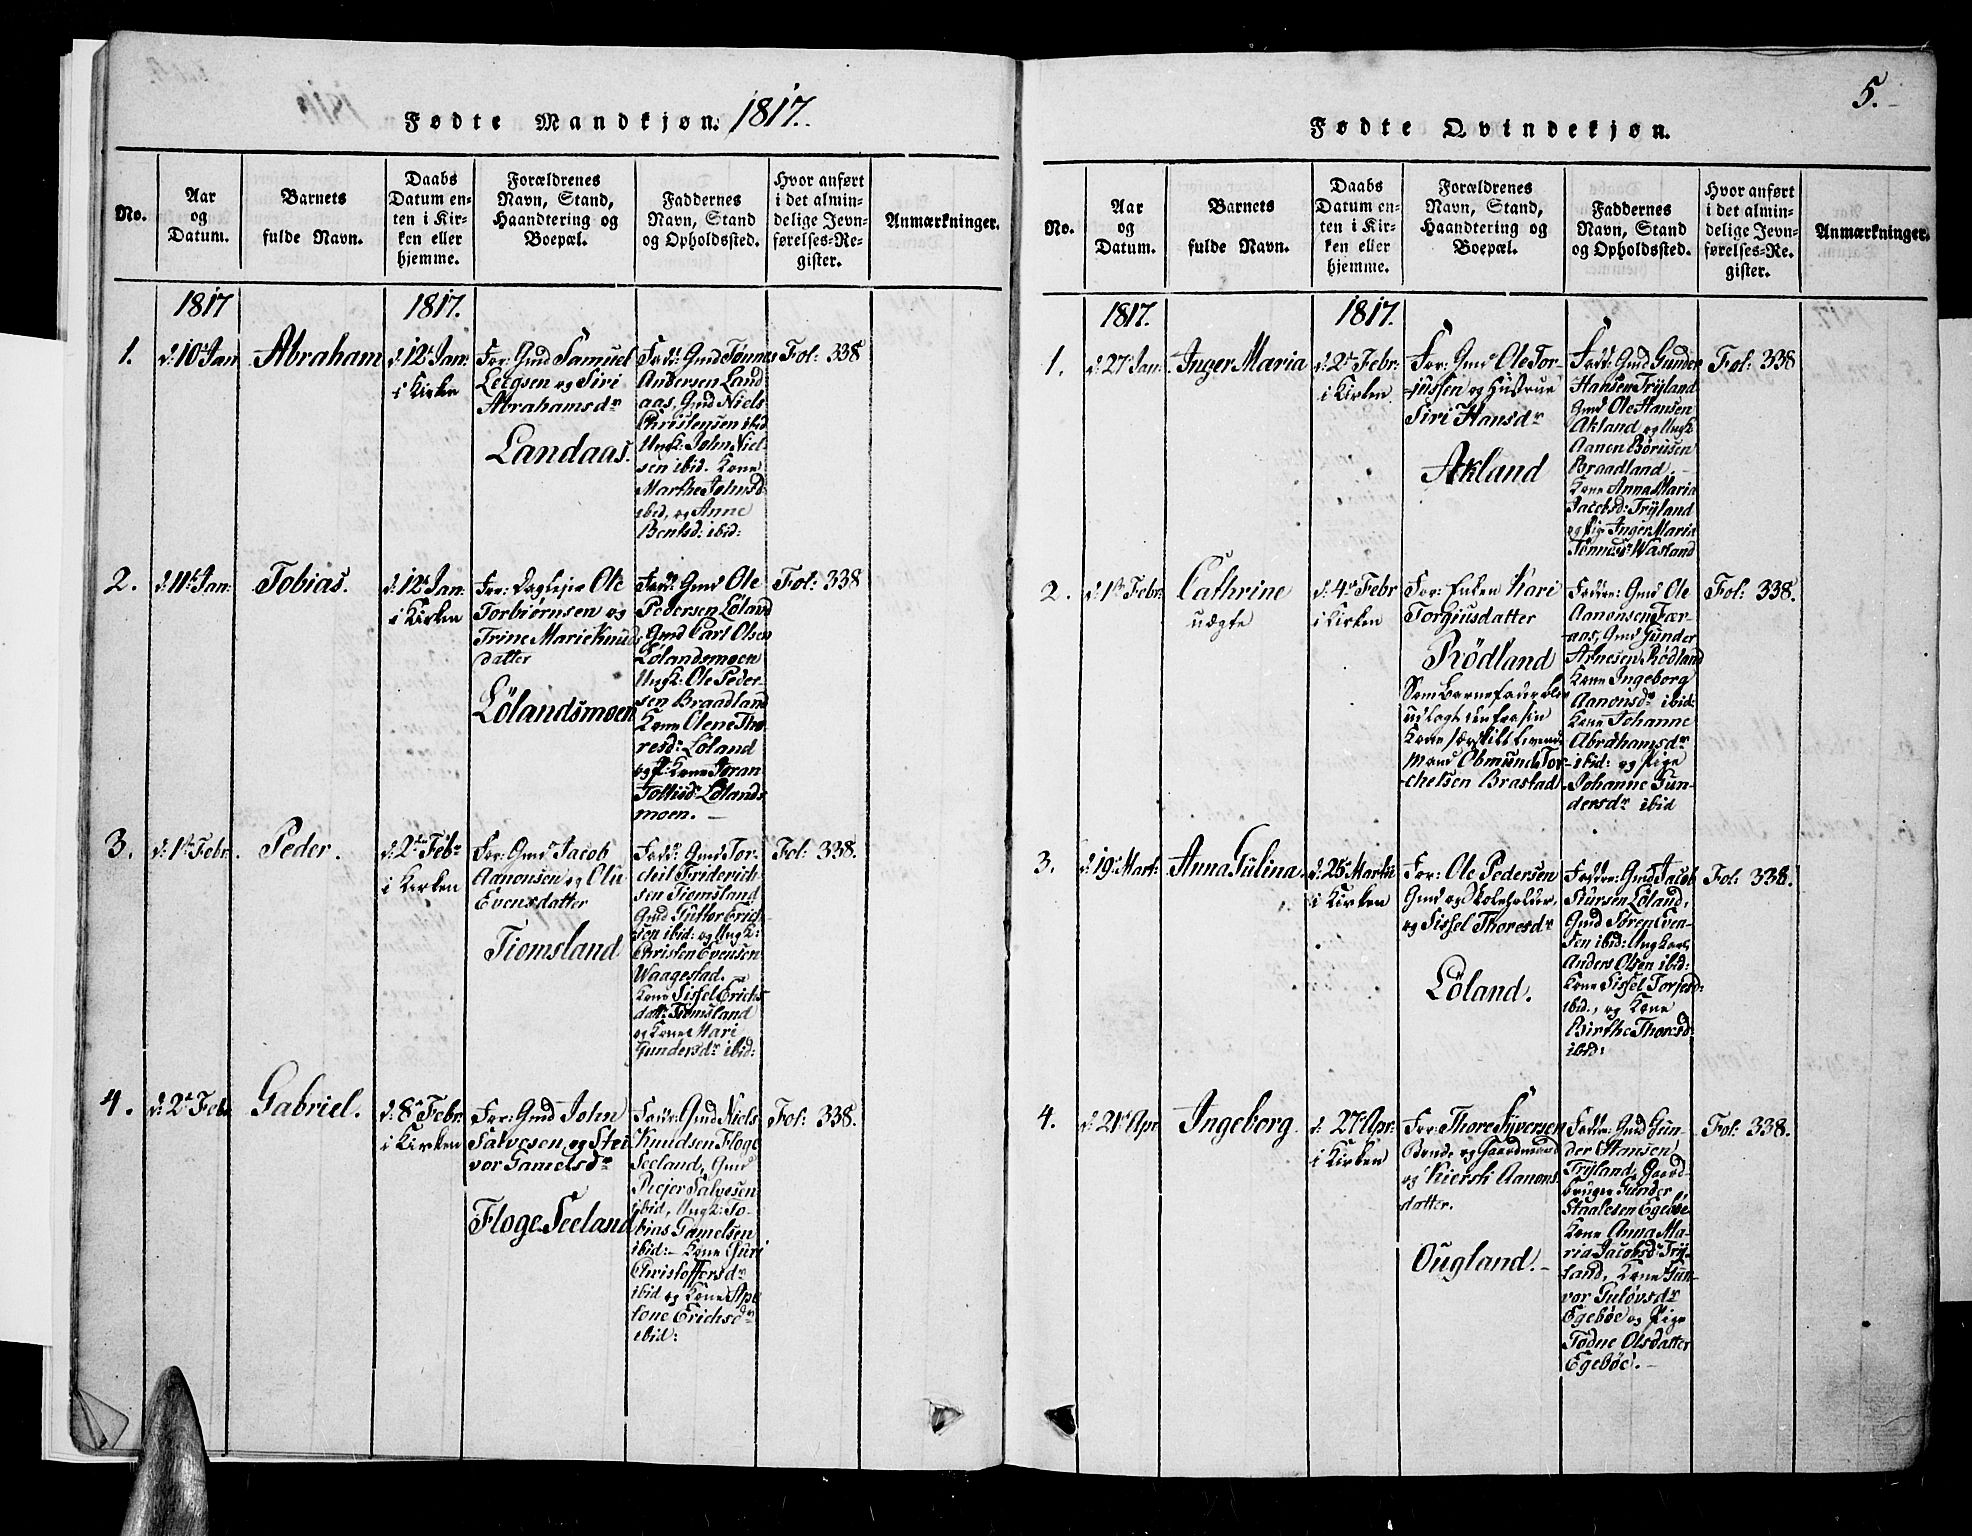 Fødte Mandkjøn. 1817.
No.
Aar
og
Datum.
Barnets
fulde Navn.
Daabs
Datum en-
ten i Kir-
ken eller
hjemme.
Forældrenes
Navn, Stand,
Haandtering og
Boepæl.
Faddernes
Navn, Stand
og Opholdssted.
Hvor anført
i det almin-
delige Jevn-
førelses-Re-
gister.
Anmærkninger.
1817
1817.
1.
d: 10de Jan
Abraham
d: 12te Jan:
i Kirken
For: Gmd Samuel
Leegsen og Siri
Abrahamsdr
Landaas.
Fadd: Gmd Tønnes
Andersen Land
aas, Gmd Niels
Christensen ibid
Ungk: John Niel-
sen ibid. Kone
Marthe Johnsd:
ibid, og Anne
Bentsd: ibid:
Fol: 338
2.
d: 11te Jan:
Tobias.
d: 12te Jan:
i Kirken
For: Daglejer Ole
Torbiørnsen og
Trine Marie Knuds
datter
Lölandsmoen
Fadd: Gmd Ole
Pedersen Löland
Gmd Carl Olsen
Lölandsmoen
Ungk: Ole Peder-
sen Braadland
Kone Olene Tho-
resd: Löland
og Kone Joran
Tollisdr Lölands-
moen.
Fol: 338
3.
d: 1ste Febr.
Peder.
d: 2den Febr
i Kirken
For: Gmd Jacob
Aanonsen og Oli
Evensdatter
Tiomsland
Fadd: Gmd Tor-
chil Friderich-
sen Tiomsland
Gmd Guttor Erich-
sen ibid: og Ungk:
Christen Evensen
Waagestad.
Kone Sissel Erichs
datt: Tiomsland
og Kone Mari
Gundersdr ibid:
Fol: 338.
4.
d: 2den Feb:
Gabriel.
d: 8de Febr:
i Kirken
For: Gmd John
Salvesen og Stei
vor Gamelsdr
Floge Seeland
Faddr: Gmd Niels
Knudsen Floge
Seeland, Gmd
Rejer Salvesen
ibid, Ungk: To-
bias Gamelsen
ibid:- Kone Guri
Christoffersdr
ibid og Kone Ape
lone Erichsdr
ibid:
Fol: 338.
5.
Fødte Qvindekjøn.
No.
Aar
og
Datum.
Barnets
fulde Navn.
Daabs
Datum en-
ten i Kir-
ken eller
hjemme.
Forældrenes
Navn, Stand,
Haandtering og
Boepæl.
Faddernes
Navn, Stand
og Opholdssted.
Hvor anført
i det almin-
delige Jevn-
førelses-Re-
gister.
Anmærkninger.
1817.
1817.
1.
d: 27de Jan:
Inger Maria
d: 2den Febr:
i Kirken
For: Gmd Ole Tor-
jussen og Hustrue
Siri Hansdr
Akland
Fadd: Gmd Gunder
Hansen Trÿland
Gmd Ole Hansen
Akland og Ungk
Aanen Børusen
Braadland.
Kone Anna Maria
Jacobsd: Trÿland
og Pige Inger Maria
Tønnesdr Wasland
Fol: 338
2.
d: 1ste Febr:
Cathrine
uægte
d: 4de Febr
i Kirken
For: Enken Kari
Torgiusdatter
Rödland
Som Barnefader blev
udlagt den fra sin
Kone særskilt levende
Mand Obmund Tor-
chelsen Brastad
Faddre: Gmd Ole
Aanonsen Fær-
aas, Gmd Gunder
Asnesen Rødland
Kone Ingeborg
Aanonsdr ibid:
Kone Johanne
Abrahamsdr
ibid: og Pige
Johanne Gun-
dersdr ibid
Fol: 338.
3.
d: 19de Mart:
Anna Gulina
d: 25de Martii
i Kirken
For: Ole Pedersen
Gmd og Skoleholder,
og Sissel Thoresdr
Löland.
Faddre: Gmd Jacob
Siursen Löland,
Gmd Søren Even-
sen ibid: Ungkarl
Anders Olsen ibid:
Kone Sissel Torjesd:
ibid:, og Kone
Birthe Thoresd:
ibid:
Fol: 338.
4.
d: 21de Apr:
Ingeborg
d: 27de Apr:
i Kirken
For: Thore Syversen
Bonde og Gaardmand
og Kiersti Aanons
datter.
Ougland.-
Faddre: Gmd Gun-
der Hansen
Trÿland, Gaard-
bruger Gunder
Staalesen Egebøe
Kone Anna Ma-
ria Jacobsdr Trÿ-
land, Kone Gun-
vor Guløvsdr
Egebøe og Pige
Todne Olsdatter
Egebøe.-
Fol: 338.